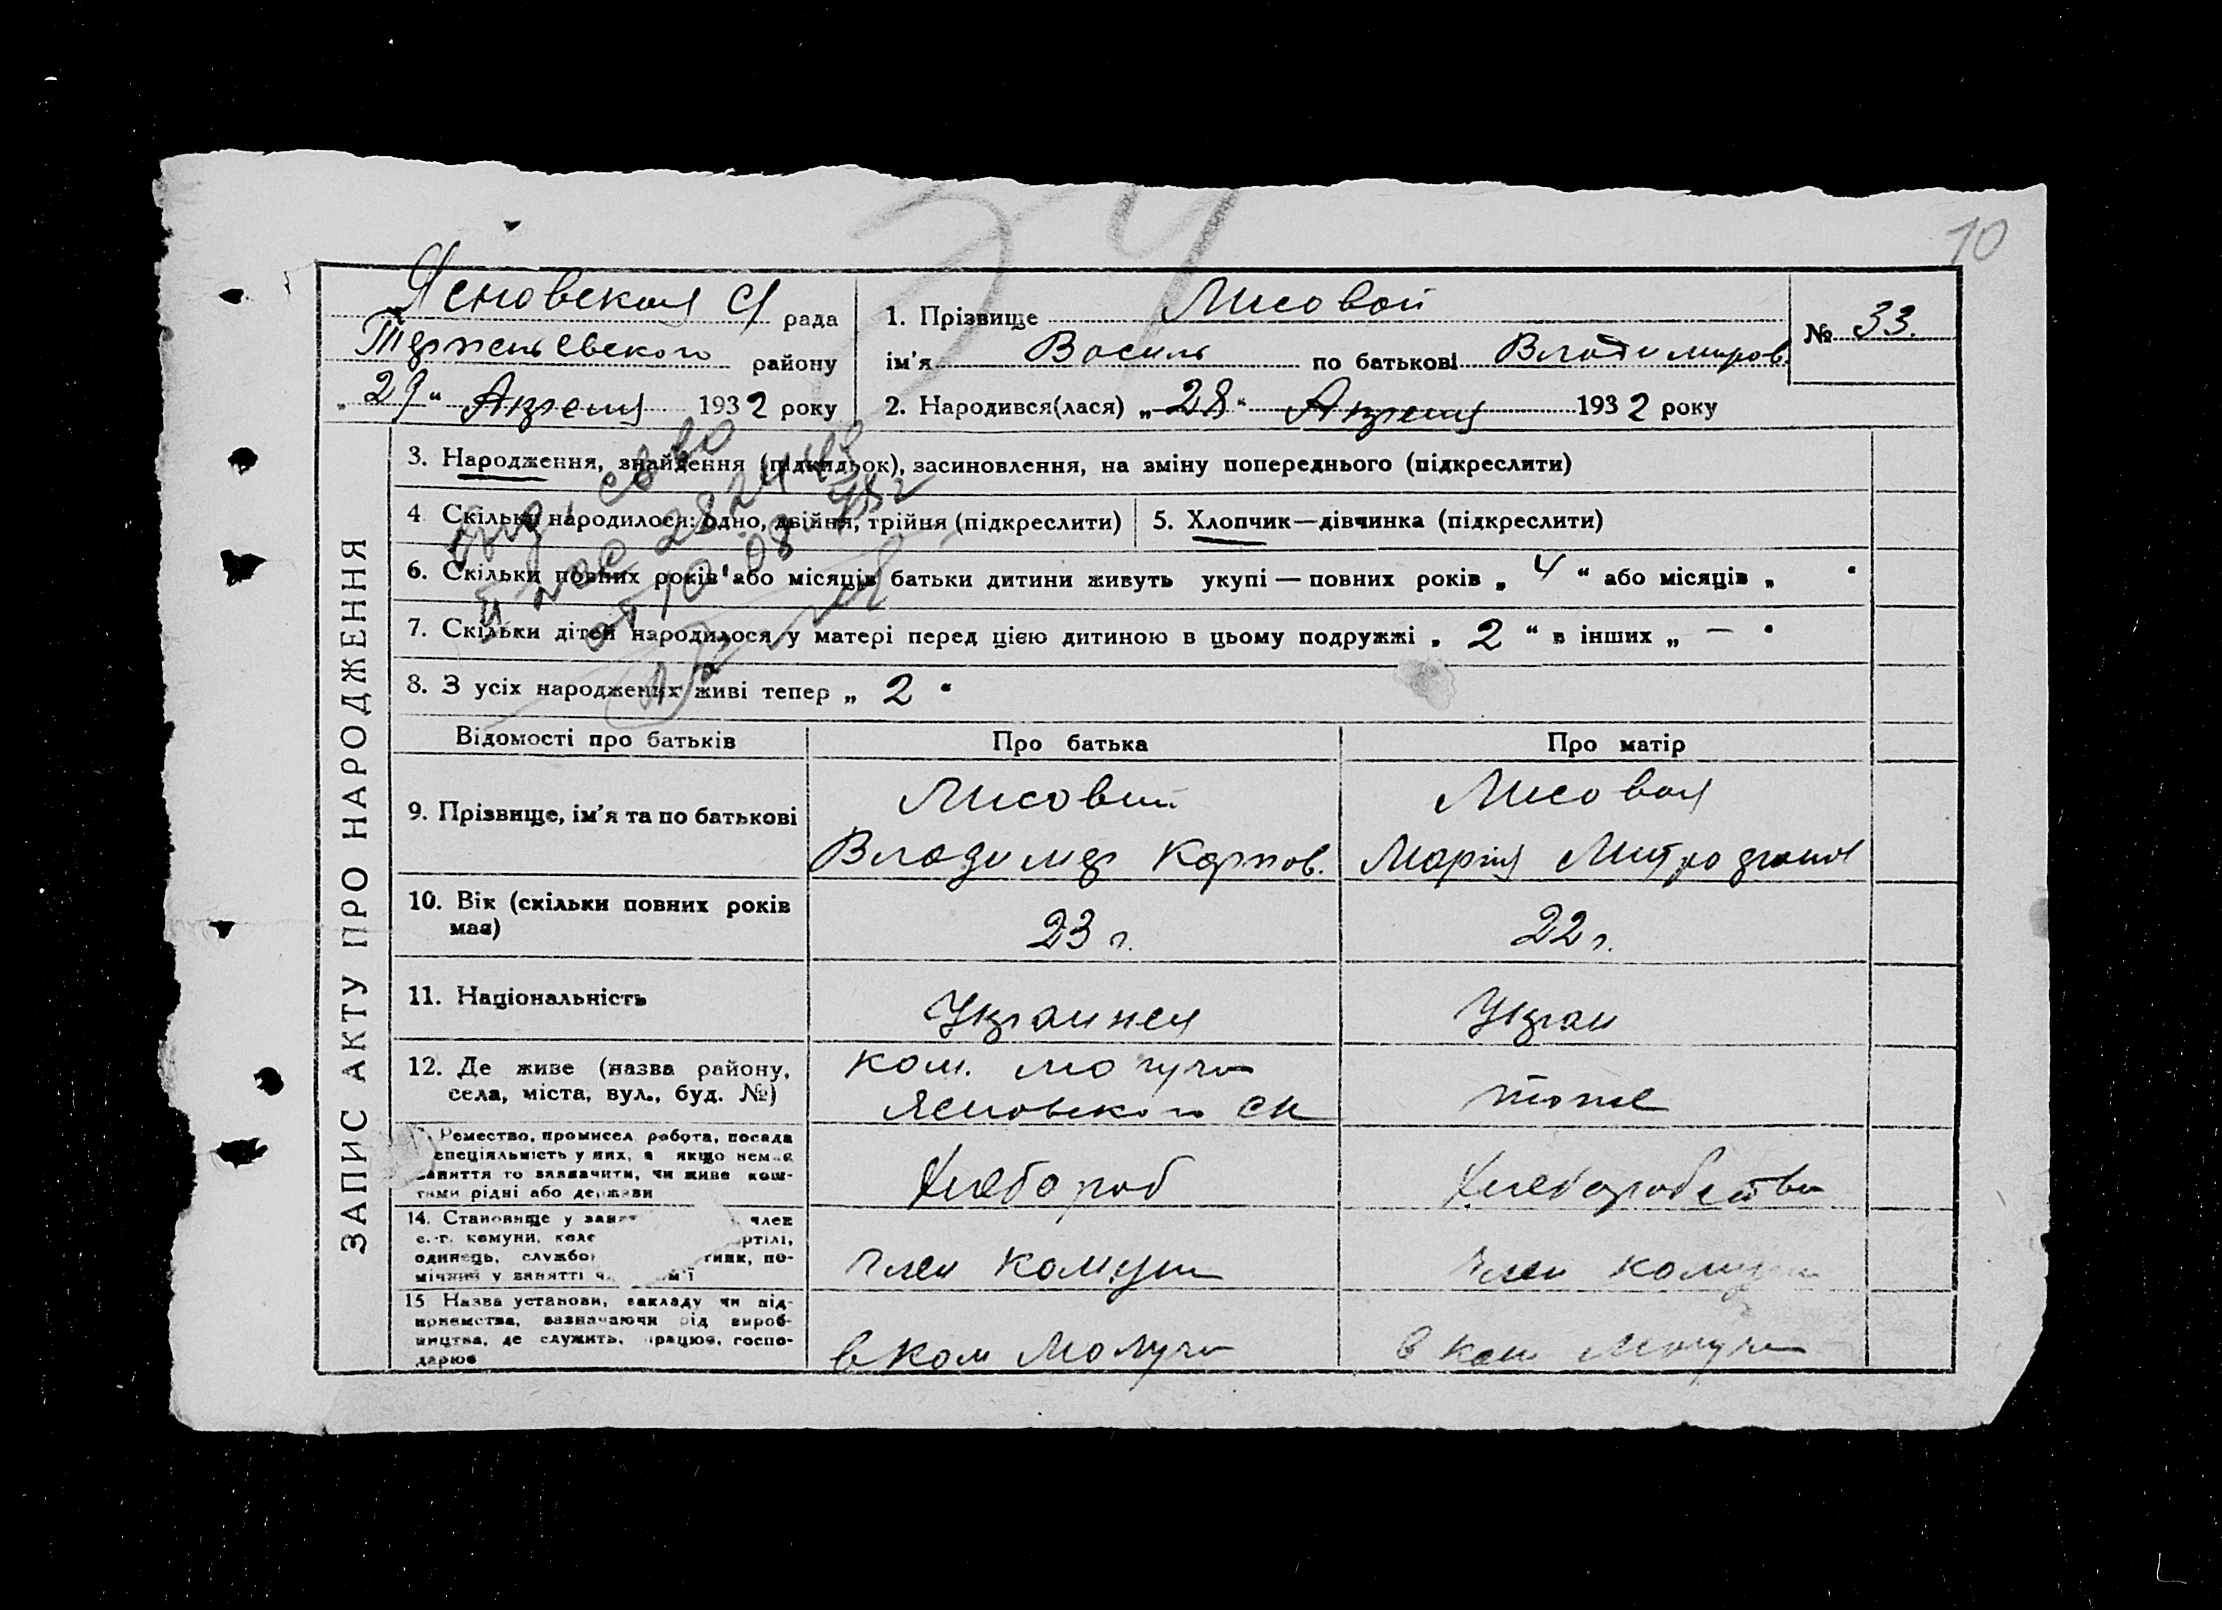 10
Ясновская с/ рада
района Терпеньевского району
„29“ Апреля 1932 року
1. Прізвище Лисовой
ім'я Василь по батькові Владимиров.
№ 33.
2. Народився(лася) „28“ Апреля 1932 року
ЗАПИС АКТУ ПРО НАРОДЖЕННЯ
3. Народження, знайдення (підкидьок), засиновлення, на зміну попереднього (підкреслити)
4 Скільки народилося: одно, двійня, трійня (підкреслити)
5. Хлопчик—дівчинка (підкреслити)
6. Скільки повних років або місяців батьки дитини живуть укупі — повних років „ 4 “ або місяців „ “
7. Скільки дітей народилося у матері перед цією дитиною в цьому подружжі „ 2 “ в інших „ — “
8. З усіх народжених живі тепер „ 2 “
Відомості про батьків
Про батька
Про матір
9. Прізвище, ім'я та по батькові
Лисовий
Владимер Карпов.
Лисовая
Мария
10. Вік (скільки повних років має)
23 г.
22 г.
11. Національність
Украинец
Украи
12. Де живе (назва району,
села, міста, вул., буд. №)
ком. Могучи
Ясновского с/с
тоже
Ремество, промисел робота, посада
спеціяльність у них, а якщо немає
заняття то зазначити, чи живе кош-
тами рідні або держави
Хлебороб
Хлеборобство
14. Становище у член
с.-г. комуни, ртілі,
одинець, по-
мічний у занятті
член комуни
член комуни
15 Назва установи, закладу чи під-
приємства, зазначаючи рід вироб-
ництва, де служить, працює, госпо-
дарює
в ком Могучи
в ком Могучи